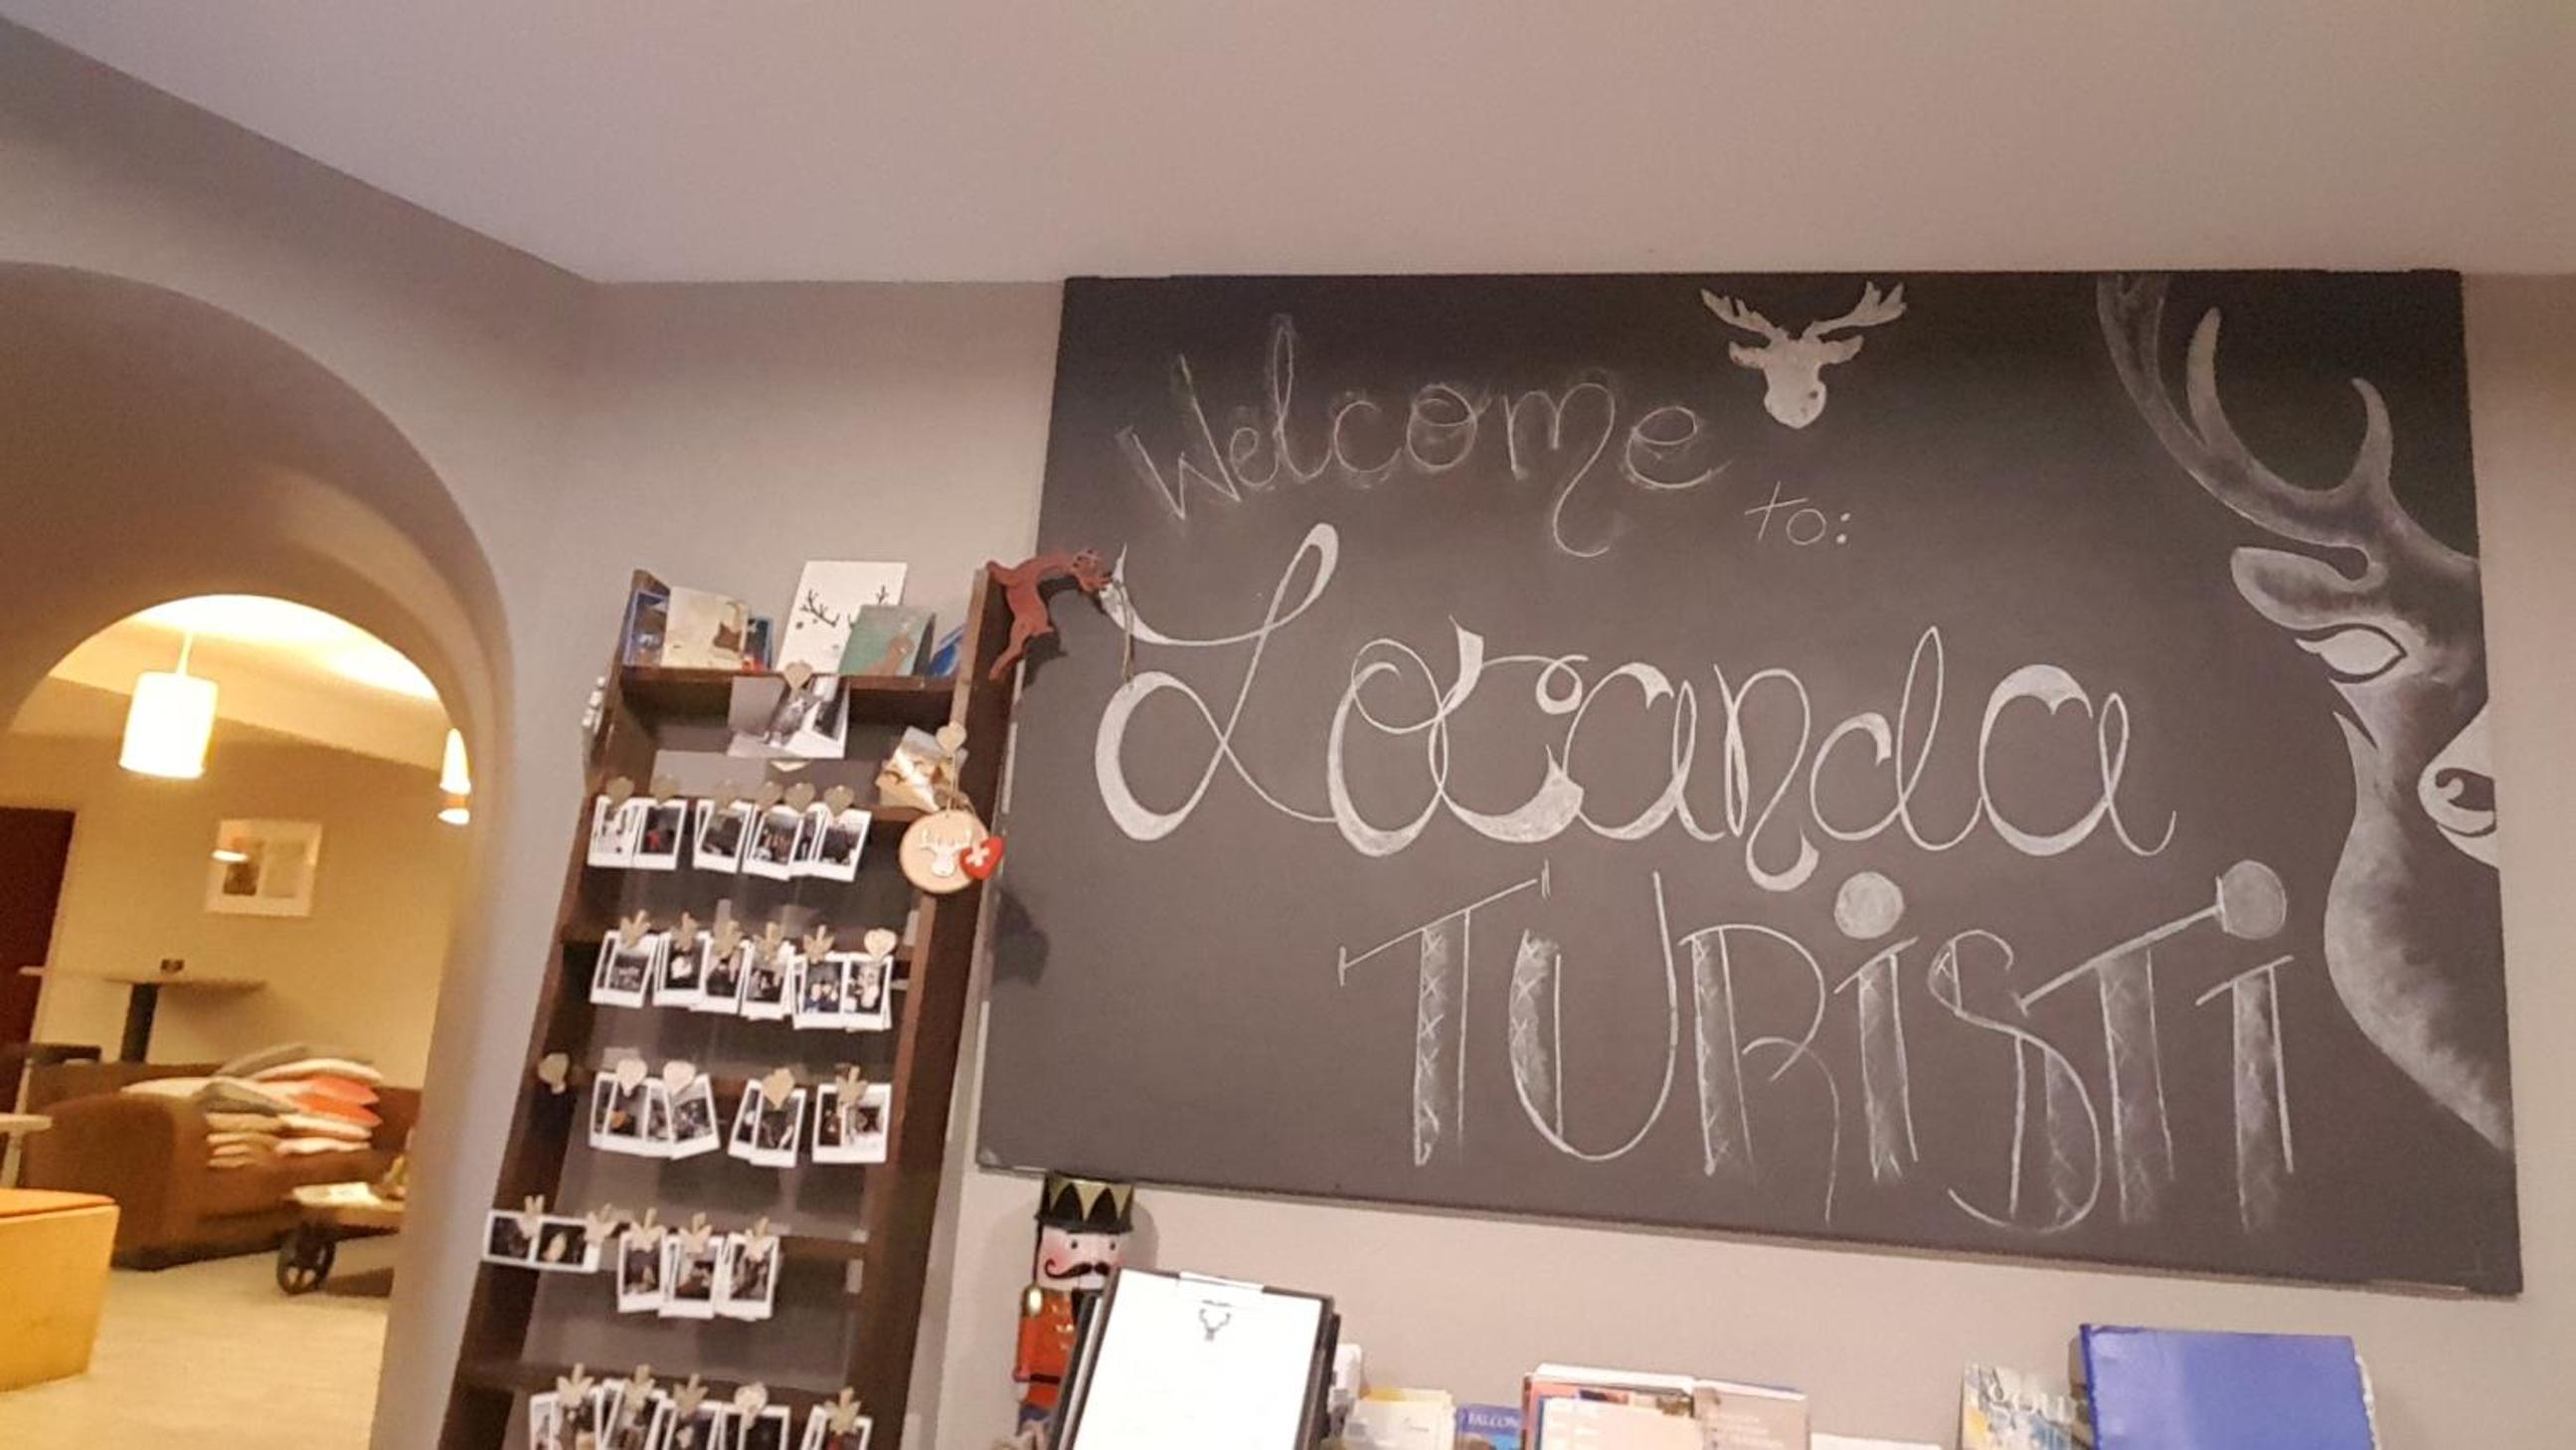 Welcome
to:
Locanda
TURiSTi
FALCON